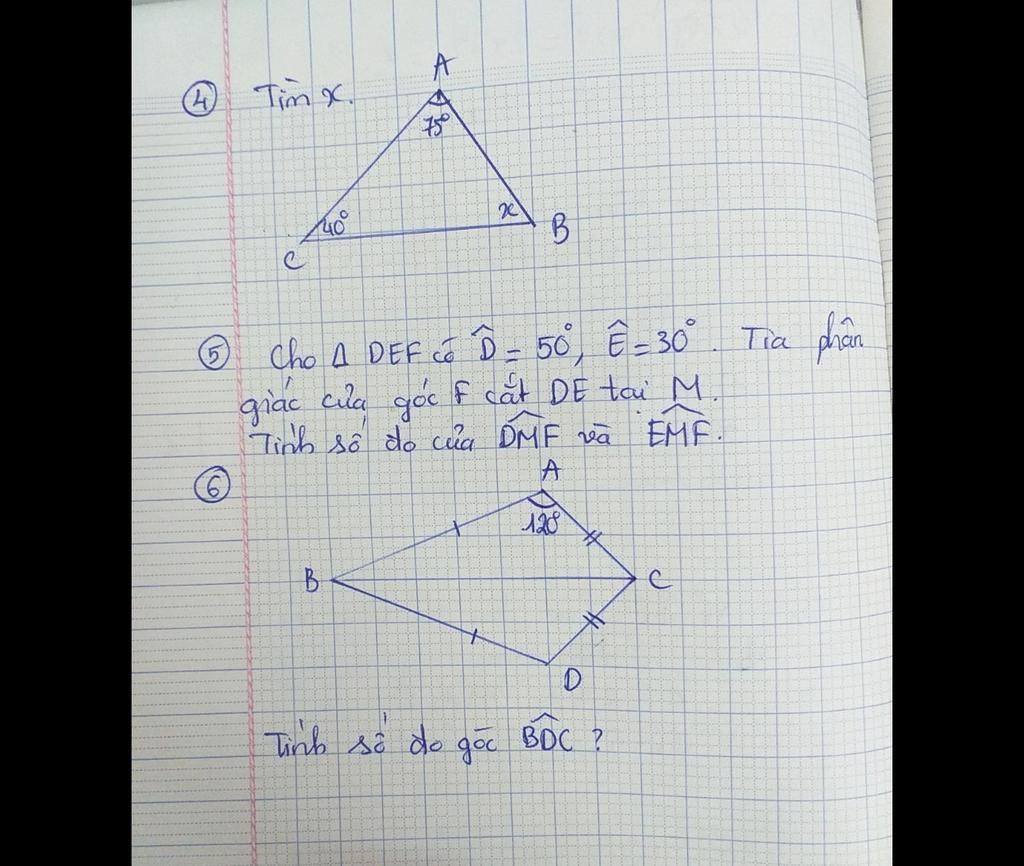 ④ Tìm x.
A
75°
40°
x
B
C
⑤ Cho Δ DEF có D̂ = 50°, Ê = 30°. Tia phân
giác của góc F cắt DE tại M.
Tính số đo của DMF và EMF.
⑥
A
120°
B
C
D
Tính số đo góc BDC ?